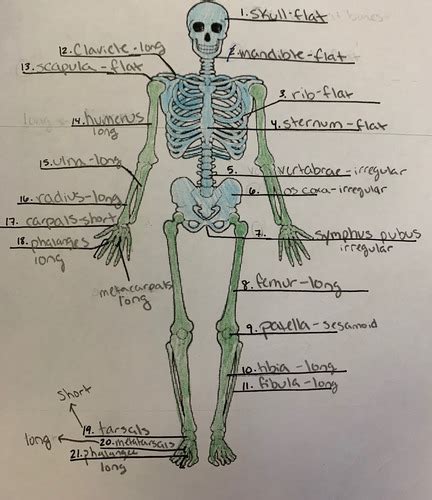 1. skull-flat
2. mandible-flat
3. rib-flat
4. sternum-flat
5. vertabrae-irregular
6. os coxa-irregular
7. symphus pubus
irregular
8. femur-long
9. patella-sesamoid
10. tibia-long
11. fibula-long
12. clavicle-long
13. scapula-flat
14. humerus
long
15. ulna-long
16. radius-long
17. carpals-short
18. phalanges
long
metacarpals
long
short
19. tarsals
long
20. metatarsals
21. phalanges
long